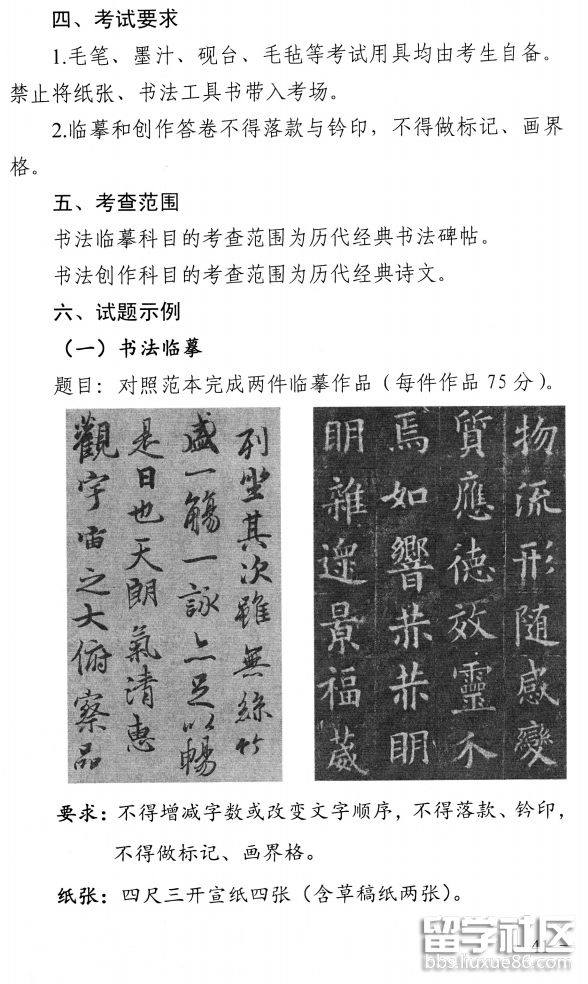 四、考试要求
1.毛笔、墨汁、砚台、毛毡等考试用具均由考生自备。
禁止将纸张、书法工具书带入考场。
2.临摹和创作答卷不得落款与钤印，不得做标记、画界
格。
五、考查范围
书法临摹科目的考查范围为历代经典书法碑帖。
书法创作科目的考查范围为历代经典诗文。
六、试题示例
（一）书法临摹
题目：对照范本完成两件临摹作品（每件作品75分）。
列坐其次雖無絲竹
盛一觴一詠亦足以暢
是日也天朗氣清惠
觀宇宙之大俯察品
物流形随感變
質應德效靈不
焉如響恭恭明
明雜遝景福葳
要求：不得增减字数或改变文字顺序，不得落款、钤印，
不得做标记、画界格。
纸张：四尺三开宣纸四张（含草稿纸两张）。
留学社区
bbs.liuxue86.com